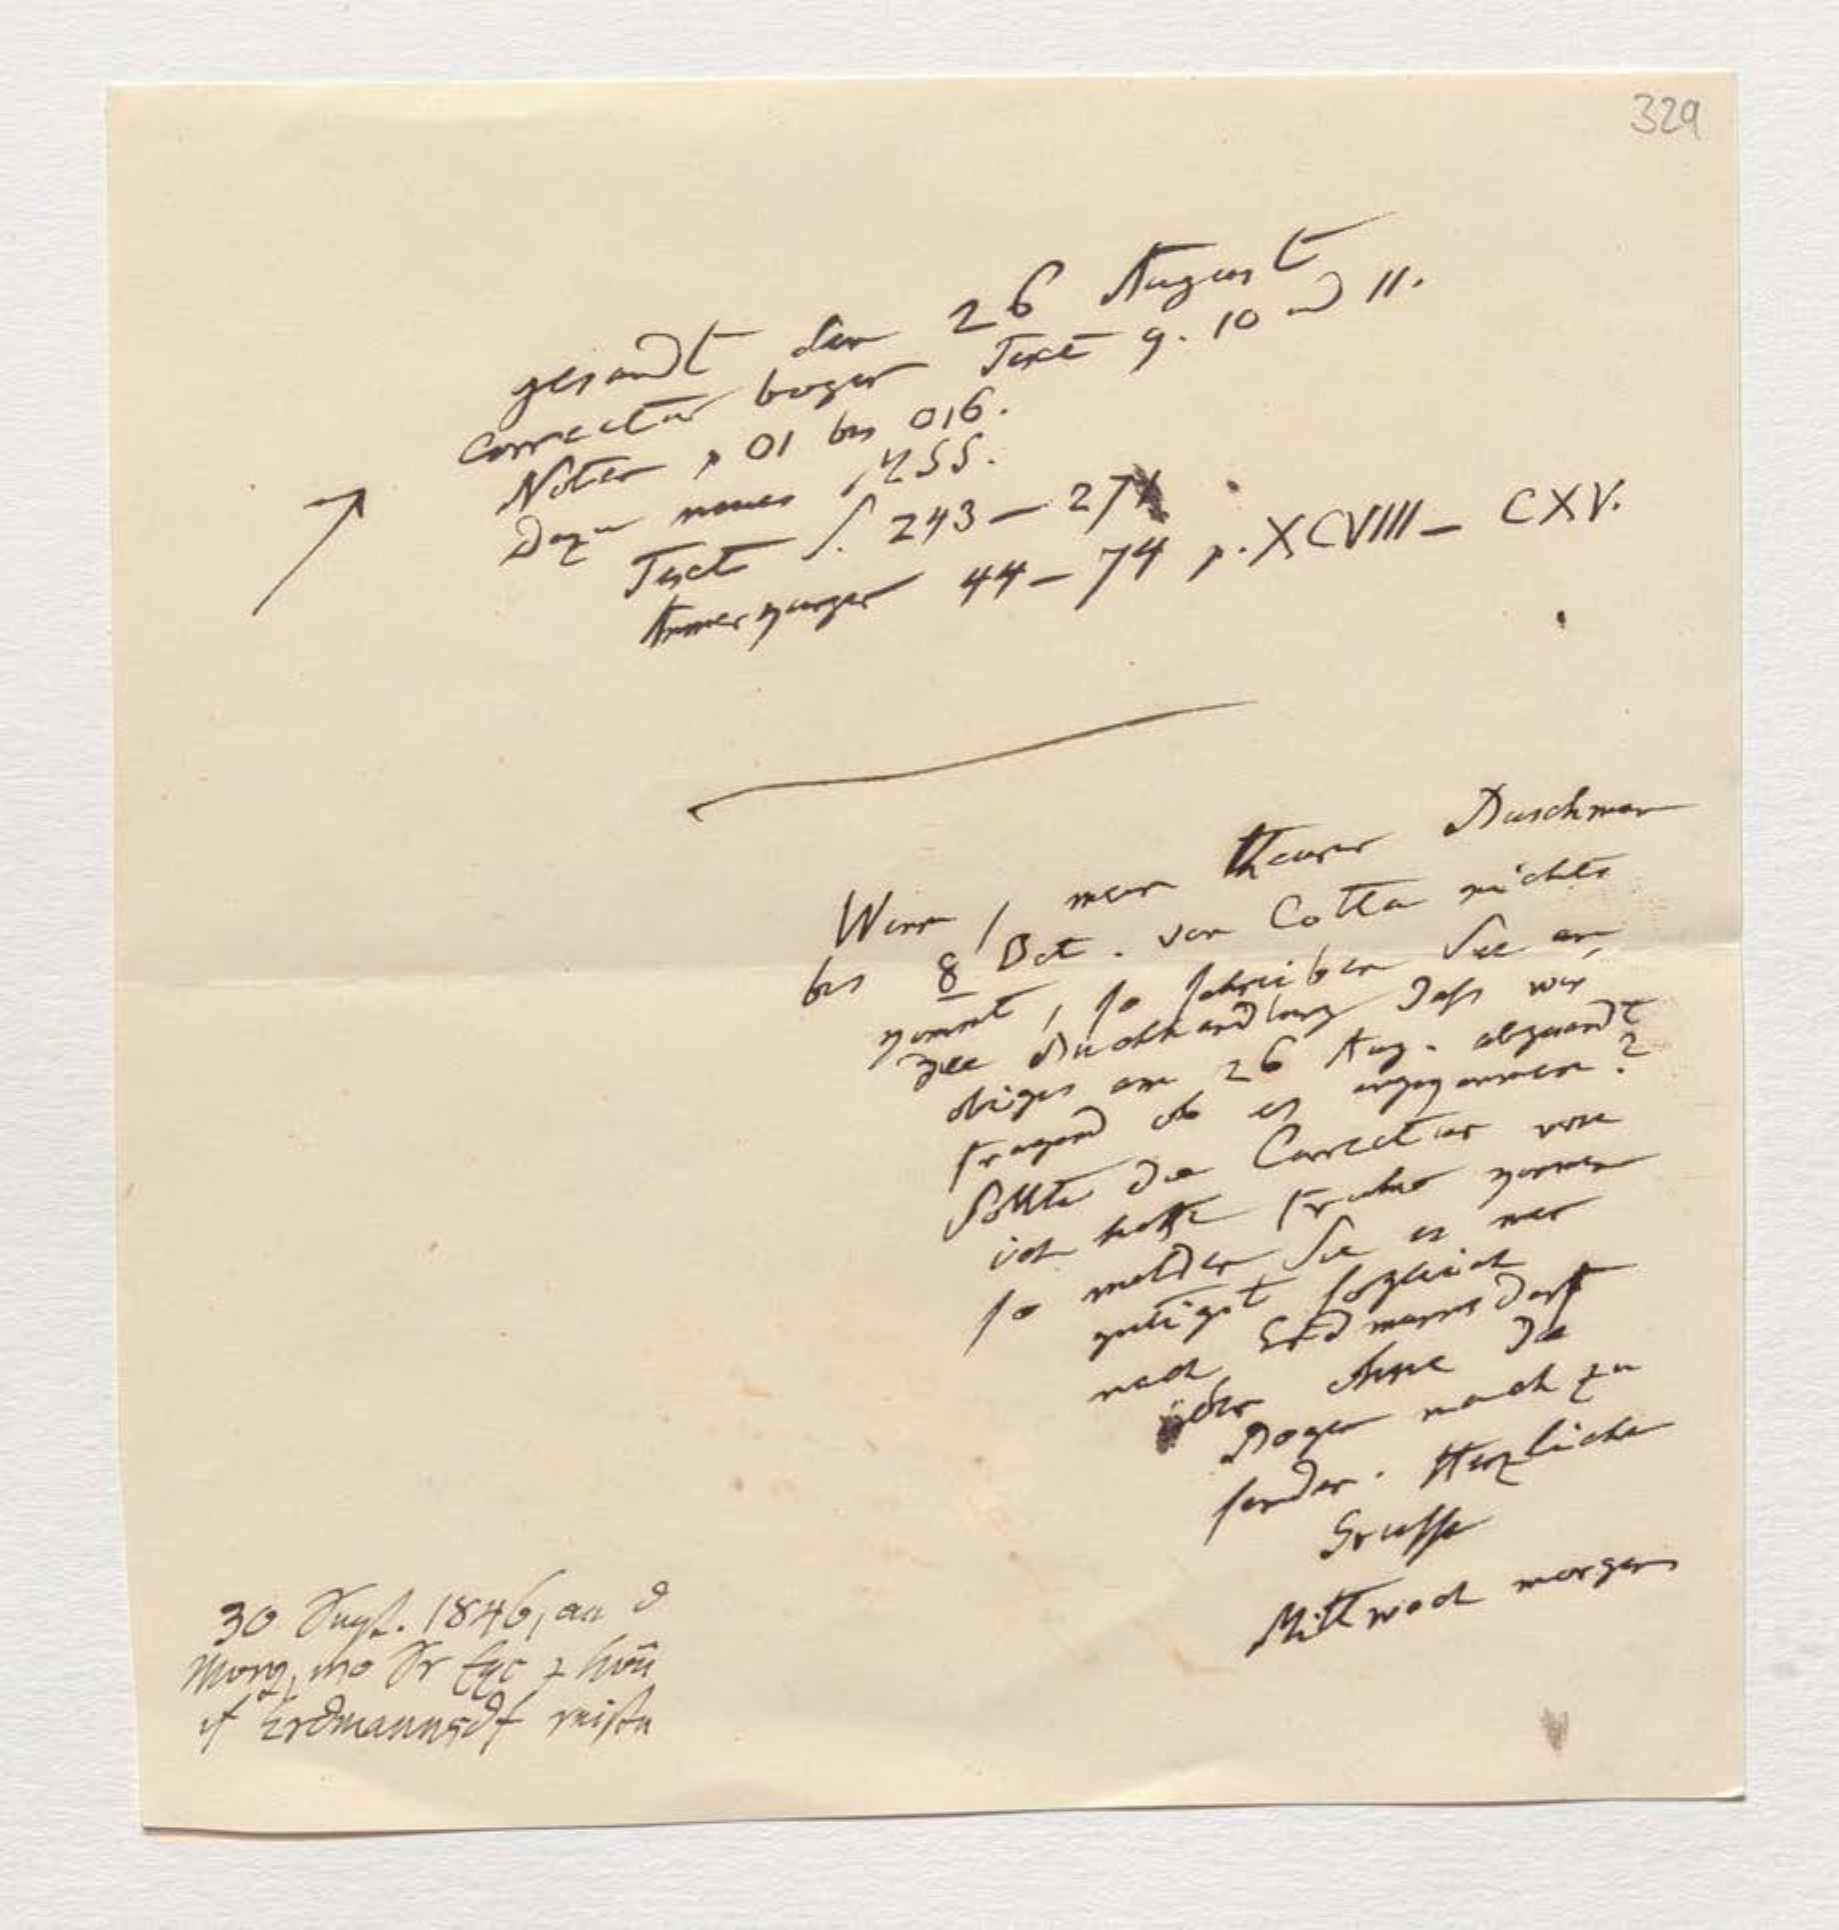 329
gesandt den 26 August
Correctur bogen Text 9. 10 und 11.
Noten p 01 bis 016.
Dazu neues
Text S. 243 – 27
Anmerkungen 44 – 74 p. XCVIII – CXV.
Wenn, mein theurer Buschman
bis 8 Oct. von Cotta nichts
kommt, so schreiben Sie an
die Buchhandlung dass wir
obiges am 26 Aug. abgesandt
fragend ob es angekommen?
Sollte die Correctur wie
ich hoffe früher kommen
so melden Sie es mir
gütigst sogleich
nach Erdmannsdorf
ohne die
Bogen nach zu
senden. Herzliche
Grüsse
Mittwoch morgens
30 Sept. 1846, an d
Morg, wo Sr Exc
Erdmannsdf reisten